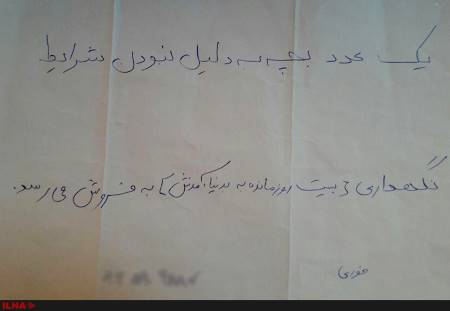 یک عدد بچه به دلیل نبودن شرایط
نگهداری و بیست روز مانده به بدنیا آمدنش به فروش می رسد.
فوری
ILNA